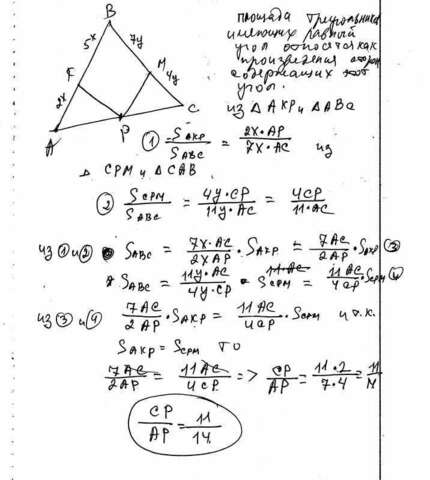 B
5x
7y
K
M
2x
4y
A
P
C
площадь треугольников
имеющих равный
угол относятся как
произведения сторон
содержащих этот
угол.
из △ AKP и △ ABC
① S_AKP / S_ABC = 2x·AP / 7x·AC из
△ CPM и △ CAB
② S_CPM / S_ABC = 4y·CP / 11y·AC = 4CP / 11·AC
из ① и ② S_ABC = 7x·AC / 2x AP · S_AKP = 7AC / 2AP · S_AKP ③
S_ABC = 11y·AC / 4y·CP · S_CPM = 11AC / 4CP · S_CPM ④
из ③ и ④ 7AC / 2AP · S_AKP = 11AC / 4CP · S_CPM и т.к.
S_AKP = S_CPM то
7AC / 2AP = 11AC / 4CP => CP / AP = 11·2 / 7·4 = 11 / 14
CP / AP = 11 / 14